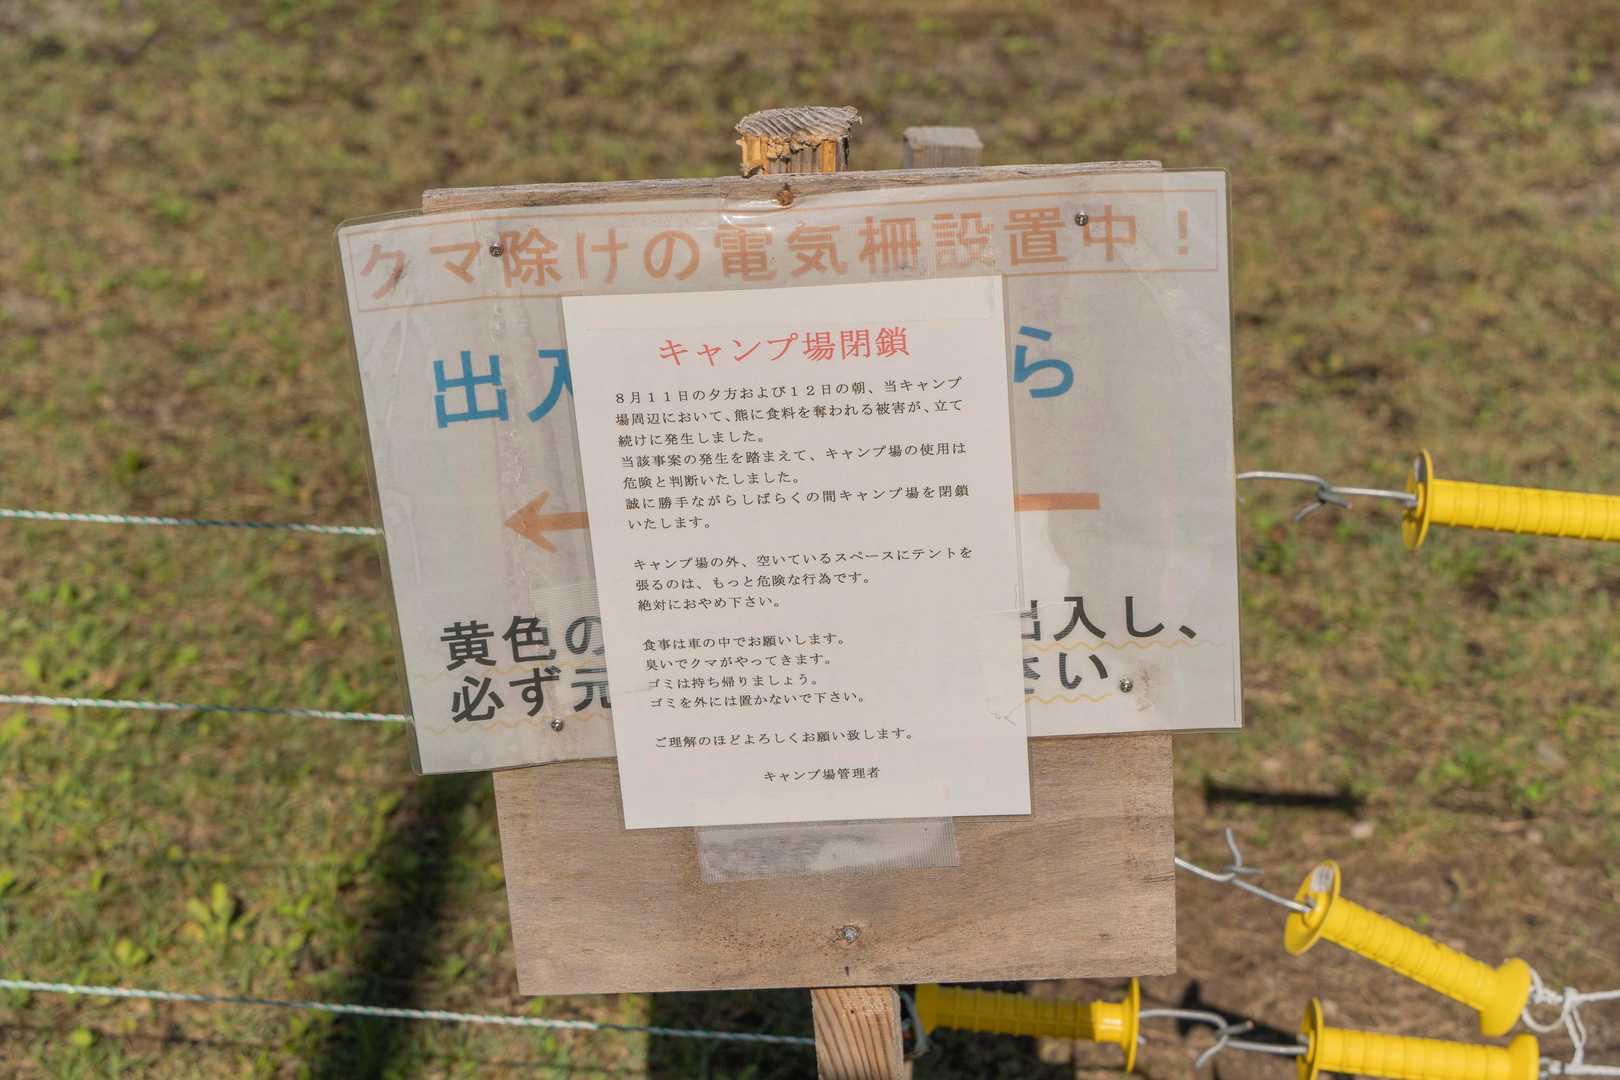 クマ除けの電気柵設置中！
キャンプ場閉鎖
8月11日の夕方および12日の朝、当キャンプ
場周辺において、熊に食料を奪われる被害が、立て
続けに発生しました。
当該事案の発生を踏まえて、キャンプ場の使用は
危険と判断いたしました。
誠に勝手ながらしばらくの間キャンプ場を閉鎖
いたします。
キャンプ場の外、空いているスペースにテントを
張るのは、もっと危険な行為です。
絶対におやめ下さい。
食事は車の中でお願いします。
臭いでクマがやってきます。
ゴミは持ち帰りましょう。
ゴミを外には置かないで下さい。
ご理解のほどよろしくお願い致します。
キャンプ場管理者
出入 ら
黄色の 出入し、
必ず元 さい。